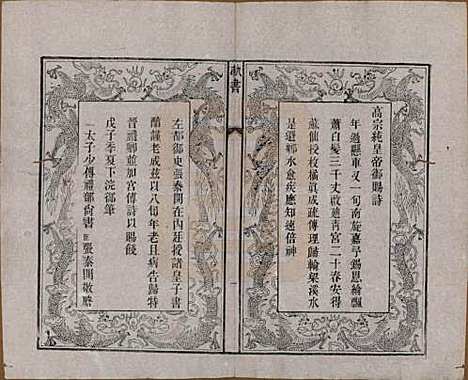 高宗純皇帝御賜詩
年過懸車又一旬南旋嘉予錫恩綸飄
蕭白髮三千丈啟迪青宮二十春安得
蘇仙授枝橘真成疏傅理歸輪梁溪水
是還鄉水愈疾應知速倍神
左都御史張泰開在內廷授諸皇子書
醇謹老成茲以八旬年老且病告歸特
晉禮卿並加宮傅詩以賜餞
戊子季夏下浣御筆
太子少傅禮部尚書臣張泰開敬謄